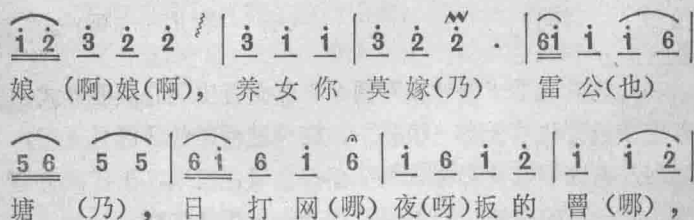 i̇ 2̇ 3̇ 2̇ 2̇ | 3̇ i̇ i̇ | 3̇ 2̇ 2̇ . | 6 i̇ i̇ i̇ 6 |
娘 (啊)娘(啊)，养 女 你 莫 嫁(乃) 雷 公(也)
5 6 5 5 | 6 i̇ 6 i̇ 6 | i̇ 6 i̇ 2̇ | i̇ i̇ 2̇ |
塘 (乃)，日 打 网(哪)夜(呀)扳 的 罾(哪)，